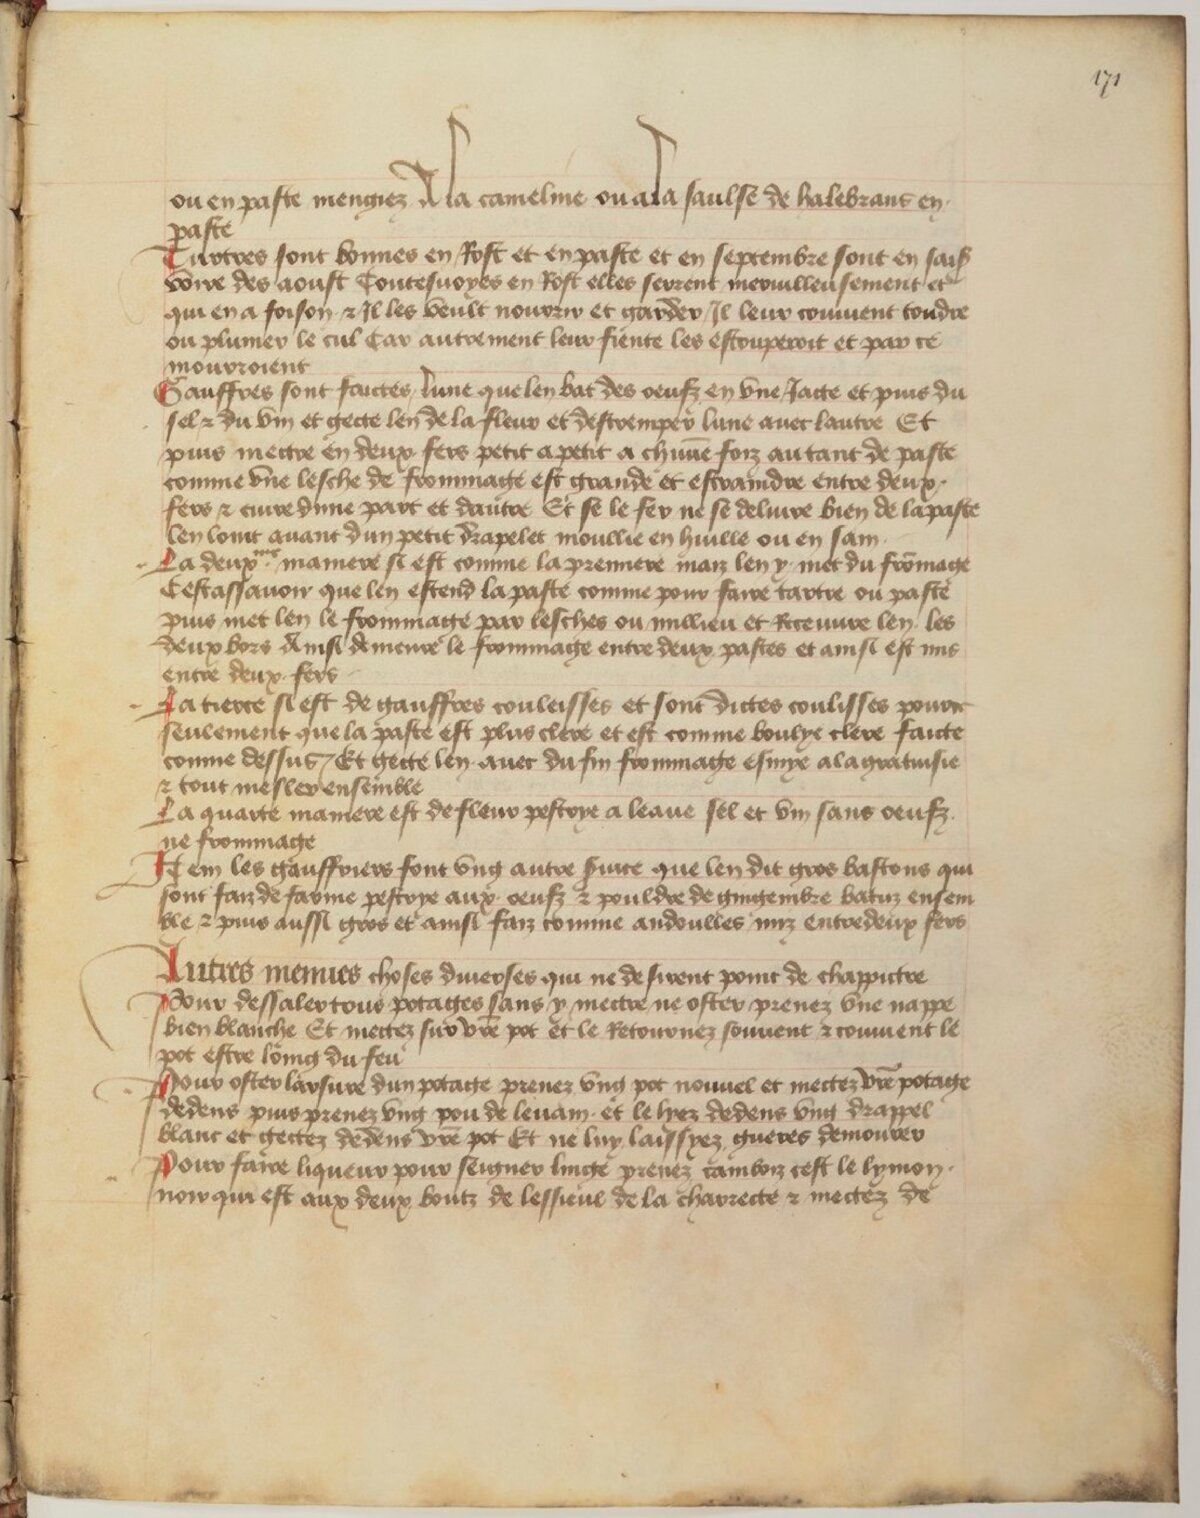 171
ou en paste mengiez A la cameline ou a la saulse de halebrans en
paste
Turtres sont bonnes en Rost et en paste et en septembre sont en sais
voire des aoust Toutesvoyes en Rost elles servent merveilleusement et
qui en a foison & Il les veult nourrir et garder Il leur convient tondre
ou plumer le cul Car autrement leur fiente les estouperoit et par ce
mourroient
Gauffres sont faictes lune que len bat des oeufz en vne Jacte et puis du
sel & du vin et gecte len de la fleur et destremper lune avec lautre Et
puis mectre en deux fers petit a petit a chũne foiz autant de paste
comme vne lesche de frommage est grande et estraindre entre deux
fers & cuire dune part et dautre Et se le fer ne se delivre bien de la paste
len loint avant dun petit drapelet moullie en huille ou en sain
La deuxme maniere si est comme la premiere maiz len y met du frõmage
Cestassavoir que len estend la paste comme pour faire tartre ou paste
puis met len le frommage par lesches ou millieu et Recueuvre len les
deux bors Ainsi demeure le frommage entre deux pastes et ainsi est mis
entre deux fers
La tierce si est de gauffres couleisses et sont dictes coulisses pource
seulement que la paste est plus clere et est comme boulye clere faicte
comme dessus Et gecte len avec du fin frommage esmye a la gratuisie
& tout mesler ensemble
La quarte maniere est de fleur pestrye a leaue sel et vin sans oeufz
ne frommage
Item les gauffriers font vng autre service que len dit gros bastons qui
sont faiz de farine pestrye aux oeufz & pouldre de gingembre batuz ensem
ble & puis aussi gros et ainsi faiz comme andoulles miz entre deux fers
Autres menues choses diverses qui ne desirent point de chappictre
Pour dessaler tous potages sans y mectre ne oster prenez vne nappe
bien blanche Et mectez sur vr̃e pot et le Retournez souvent & convient le
pot estre loing du feu
Pour oster larsure dun potage prenez vng pot nouvel et mectez vr̃e potage
dedens puis prenez vng pou de levain et le liez dedens vng drappel
blanc et gectez dedens vr̃e pot Et ne luy laissyez gueres demourer
Pour faire liqueur pour seigner linge prenez cambviz cest le lymon
noir qui est aux deux boutz de lessieul de la charrecte & mectez de